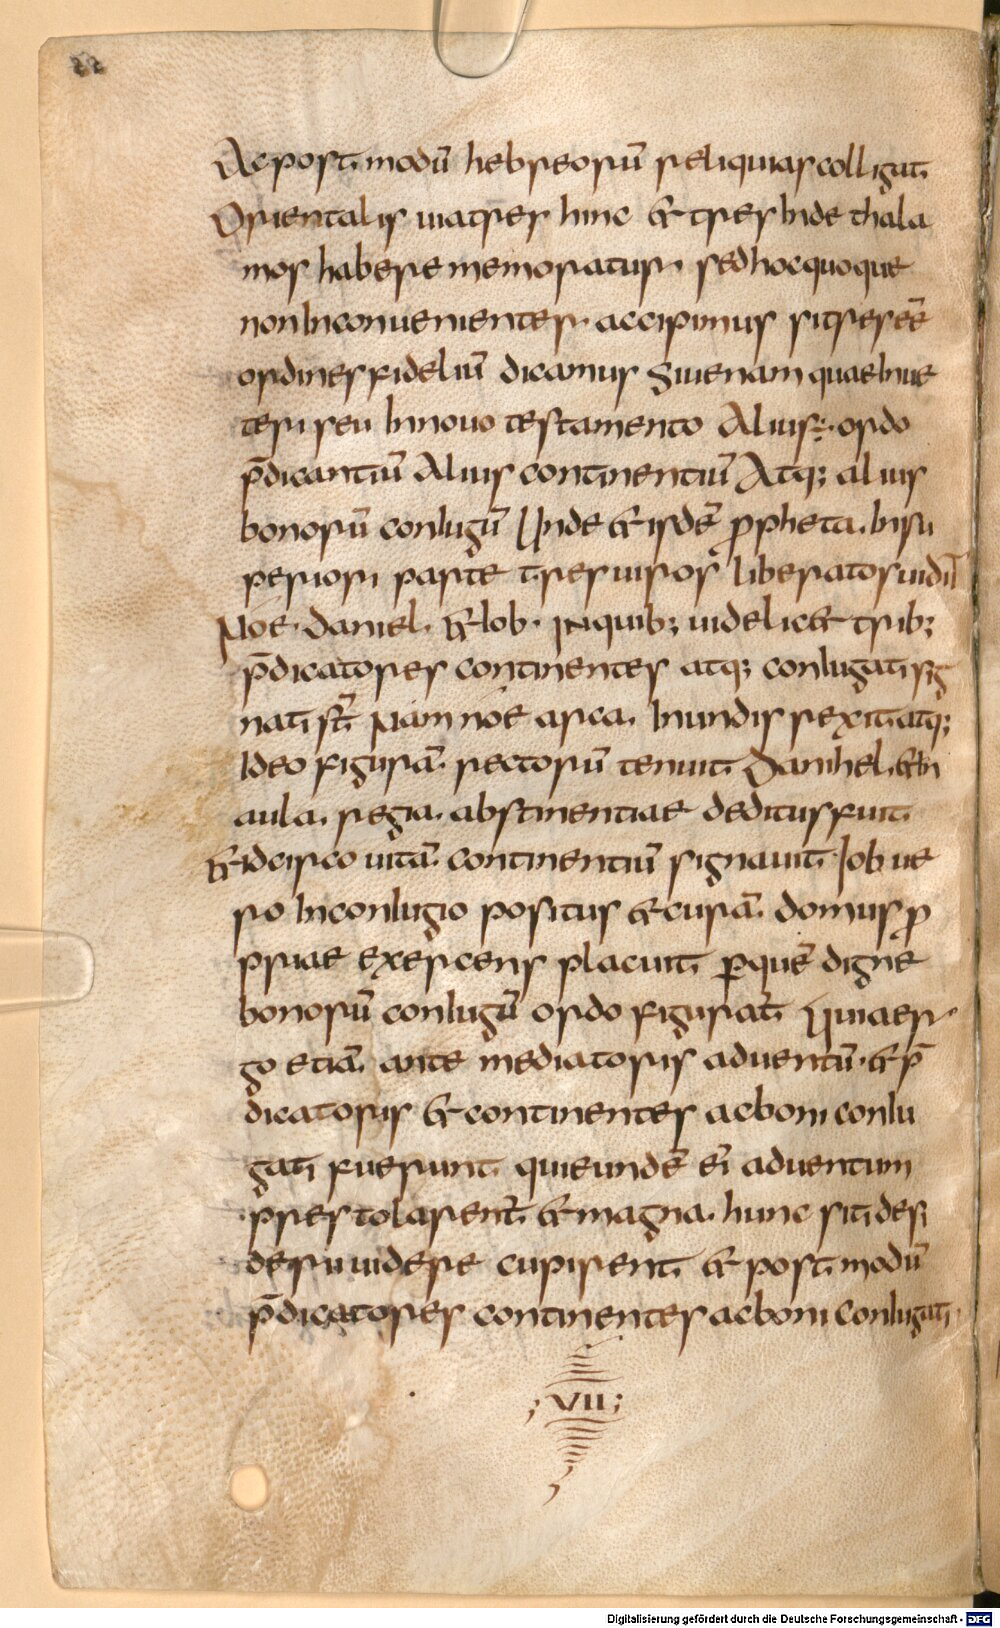 Ac posti modū hebreorū reliquias colligat
Orientalis uia tres hinc & tres inde thala
mos habere memoratur. sed hoc quoque
non inconuenienter. accipimus si tres eē
ordines fideliū dicamus Siue nam quae in ue
teri seu in nouo testamento Alius. ordo
p̄dicantiū Alius continentiū Atq; alius
bonorū coniugū Unde & isdē propheta. in su
periori parte tres uiros liberatos uidit
Noe. daniel. & iob. in quib; uidelic& trib;
p̄dicatores continentes atq; coniugati sig
nati st̄ Nam noe arca. in undis rexit atq;
ideo figurā. rectorū tenuit Danihel. & in
aula. regia. abstinentiae deditus fuit.
& idcirco uitā. continentiū signauit. Iob ue
ro in coniugio positus & curā. domus pro
priae exercens placuit. per quē digne
bonorū coniugū ordo figurat̄ Quia er
go etiā. ante mediatoris aduentū. & p̄
dicatoris & continentes ac boni coniu
gati fuerunt. qui eundē ei aduentum
prestolarent̄. & magna. hunc siti desi
derii uidere cupirent. & posti modū
p̄dicatores continentes ac boni coniugati.
; VII ;
Digitalisierung gefördert durch die Deutsche Forschungsgemeinschaft - DFG